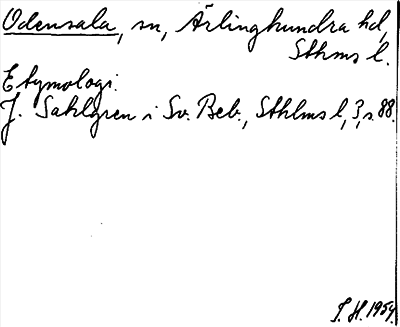 Odensala, sn, Ärlinghundra hd,
Sthms l.
Etymologi.
J. Sahlgren i Sv. Beb., Sthlms l, 3, s. 88.
I. H. 1954.